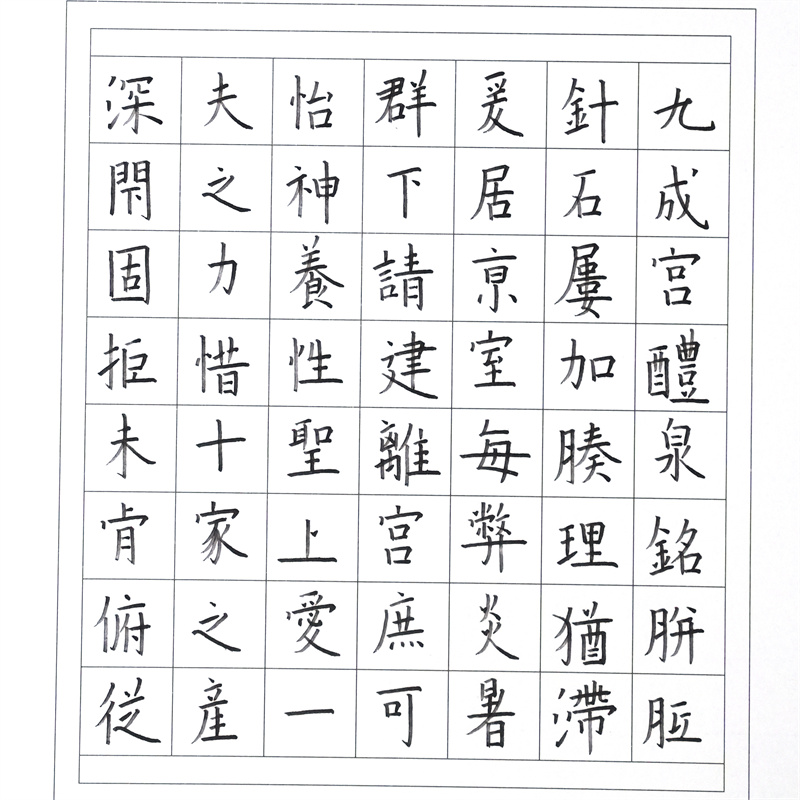 九成宮醴泉銘胼胝
針石屢加腠理猶滯
爰居亰室每弊炎暑
群下請建離宮庶可
怡神養性聖上愛一
夫之力惜十家之産
深閇固拒未肯俯從